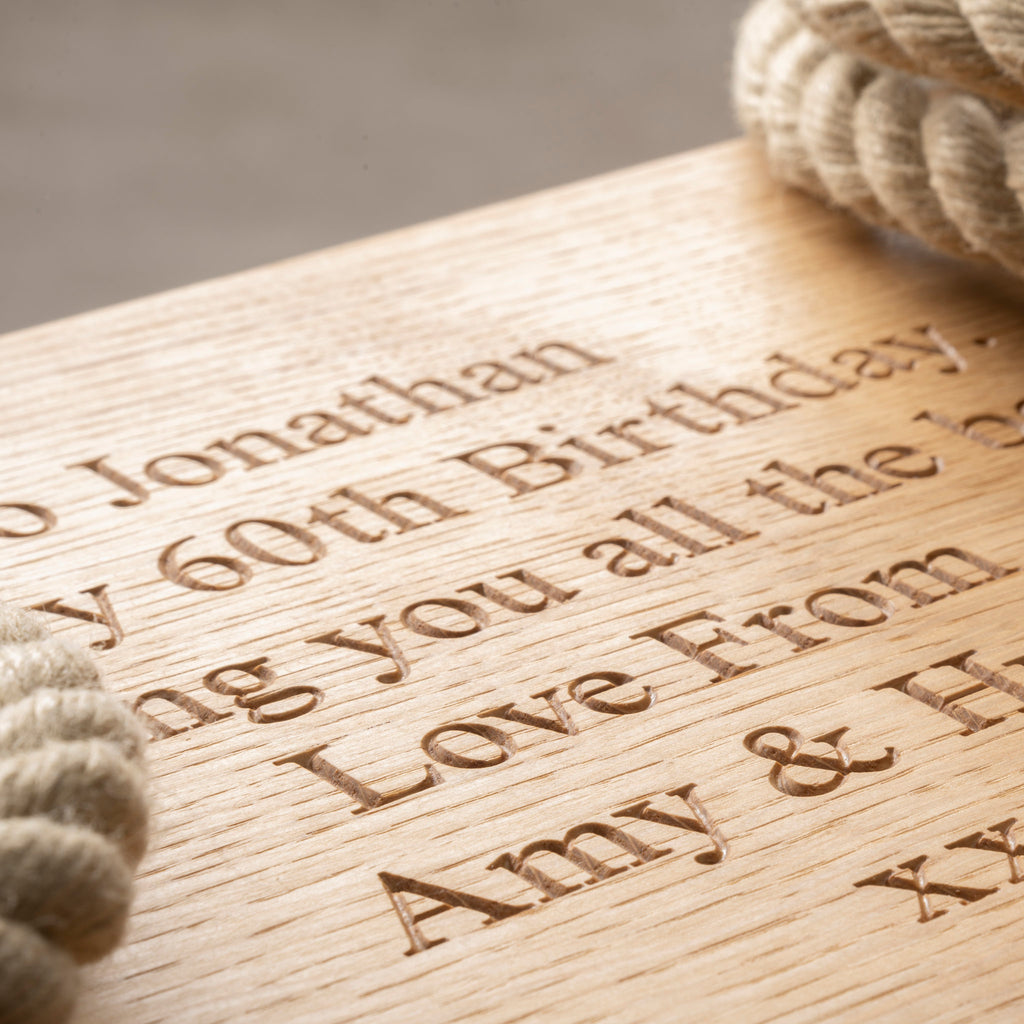 Jonathan
60th Birthday.
you all the
Love From
Amy &